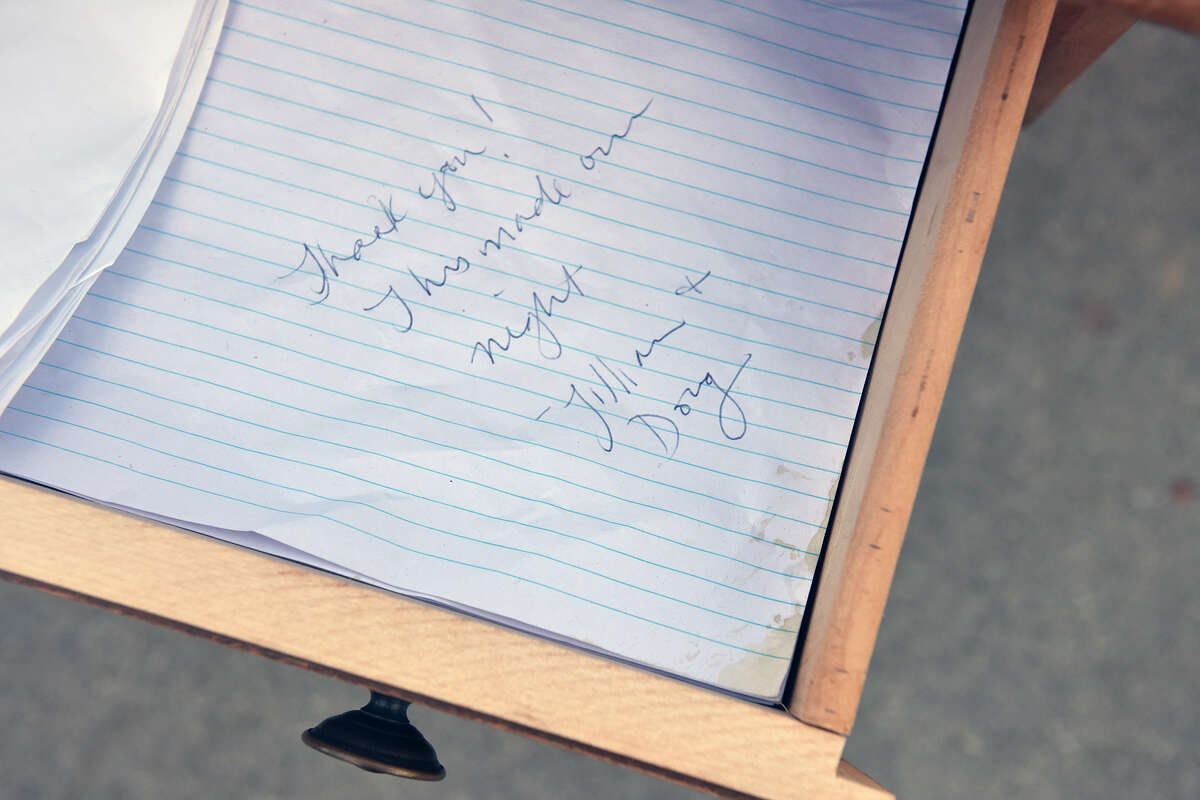 Thank you!
This made our
night
- Jillian &
Doug